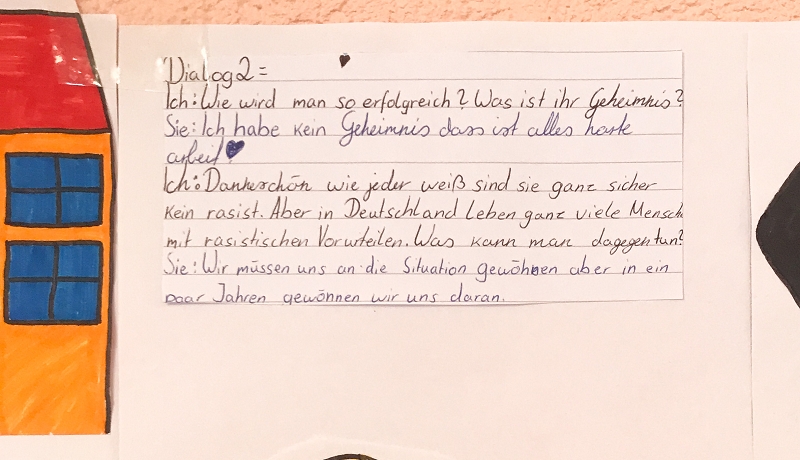 Dialog 2 =
Ich: Wie wird man so erfolgreich? Was ist ihr Geheimnis?
Sie: Ich habe kein Geheimnis dass ist alles harte
arbeit
Ich: Dankeschön wie jeder weiß sind sie ganz sicher
kein rasist. Aber in Deutschland Leben ganz viele Mensch
mit rasistischen Vorurteilen. Was kann man dagegen tun?
Sie: Wir müssen uns an die Situation gewöhnen aber in ein
paar Jahren gewönnen wir uns daran.